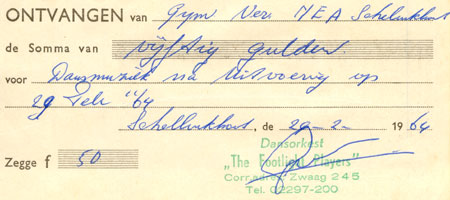 ONTVANGEN van Gym Ver. NEA Schellinkhout
de Somma van vijftig gulden
voor Dansmuziek na Uitvoering op
29 Febr '64
Schellinkhout, de 29-2- 1964
Zegge f 50
Dansorkest
"The Footlight Players"
Corr.adres: Zwaag 245
Tel. 02297-200